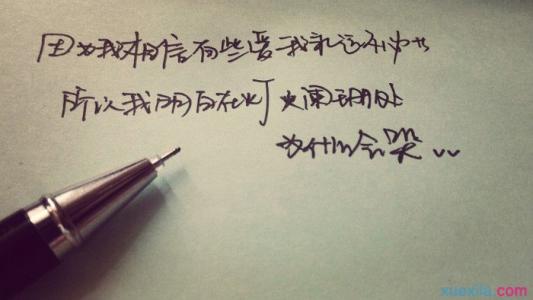 因为我相信有些爱我永远不
所以我明白在灯火阑珊处
为什么会哭..
xuexila.com